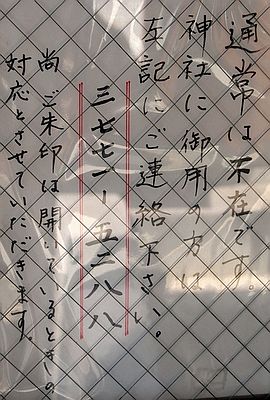 通常は不在です。
神社に御用の方は
左記にご連絡下さい。
三七七一ー五二八八
尚ご朱印は開いているときの
対応とさせていただきます。